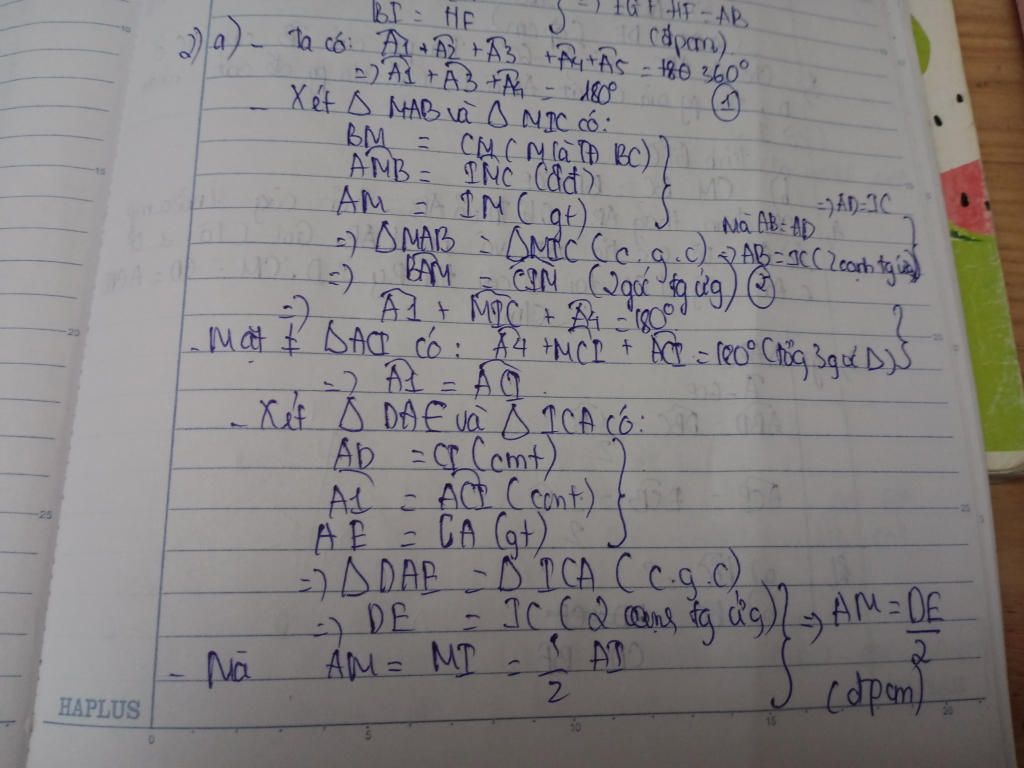 BI = HF } => IG + HF = AB
(đpcm)
2) a) - Ta có: A1 + A2 + A3 + A4 + A5 = 360°
=> A1 + A3 + A4 = 180° ①
- Xét Δ MAB và Δ MIC có:
BM = CM (M là TĐ BC)
AMB = IMC (đđ)
AM = IM (gt)
=> AD = IC
Mà AB = AD
=> ΔMAB = ΔMIC (c.g.c) => AB = IC (2 cạnh tg ứg)
=> BAM = CIM (2 góc tg ứg) ②
=> A1 + MIC + A4 = 180°
- Mặt ≠ ΔACI có: A4 + MCI + ACI = 180° (tổg 3 góc Δ)
=> A1 = ACI
- Xét Δ DAE và Δ ICA có:
AD = CI (cmt)
A1 = ACI (cmt)
AE = CA (gt)
=> Δ DAE = Δ ICA (c.g.c)
=> DE = IC (2 cạnh tg ứg) } => AM = DE/2
- Mà AM = MI = 1/2 AI
(đpcm)
HAPLUS
15
20
25
25
0 5 10 15 20